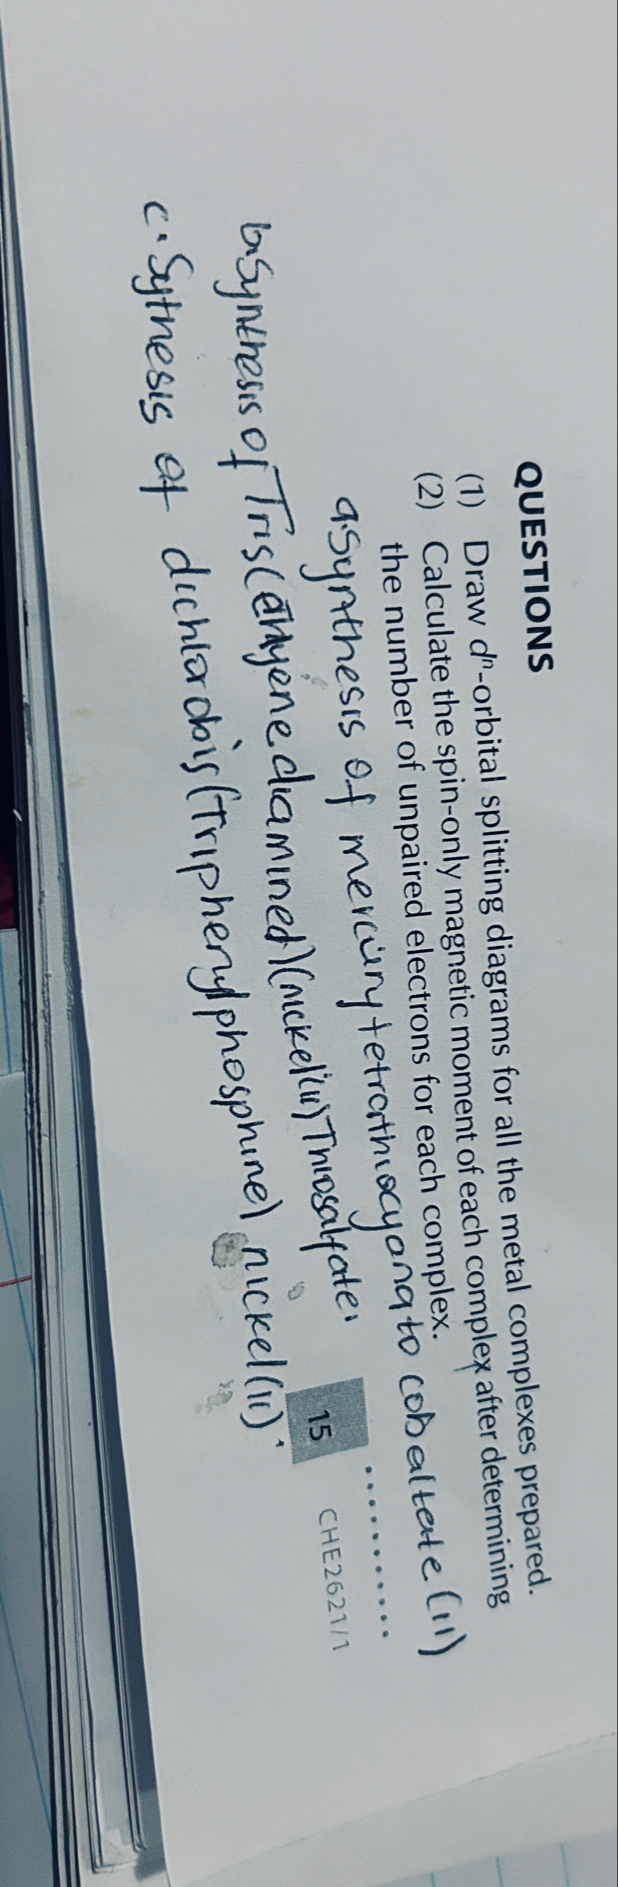 QUESTIONS
(1) Draw dⁿ-orbital splitting diagrams for all the metal complexes prepared.
(2) Calculate the spin-only magnetic moment of each complex after determining
the number of unpaired electrons for each complex.
a. Synthesis of mercury tetrathiocyanato cobaltate (II)
b. Synthesis of Tris( diamined) (nickel(II) Thiosalfate.
c. Sythesis of dichlorobis (Triphenylphosphine) nickel(II).
15
CHE2621/1